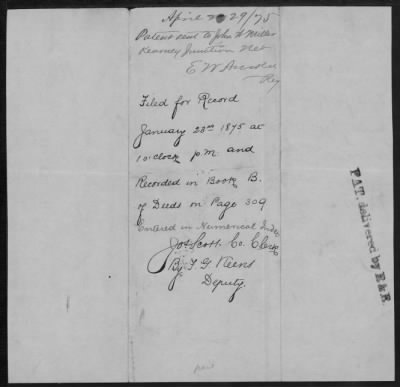 April 29/75
Patent sent to John W Miller
Kearney Junction Neb
E W
Reg
Filed for Record
January 23rd 1875 at
10 oclock p.m. and
Recorded in Book B.
of Deeds on Page 309
Entered in Numerical Index
Jos Scott Co. Clerk
By F G Keens
Deputy.
PAT. delivered by R & R.